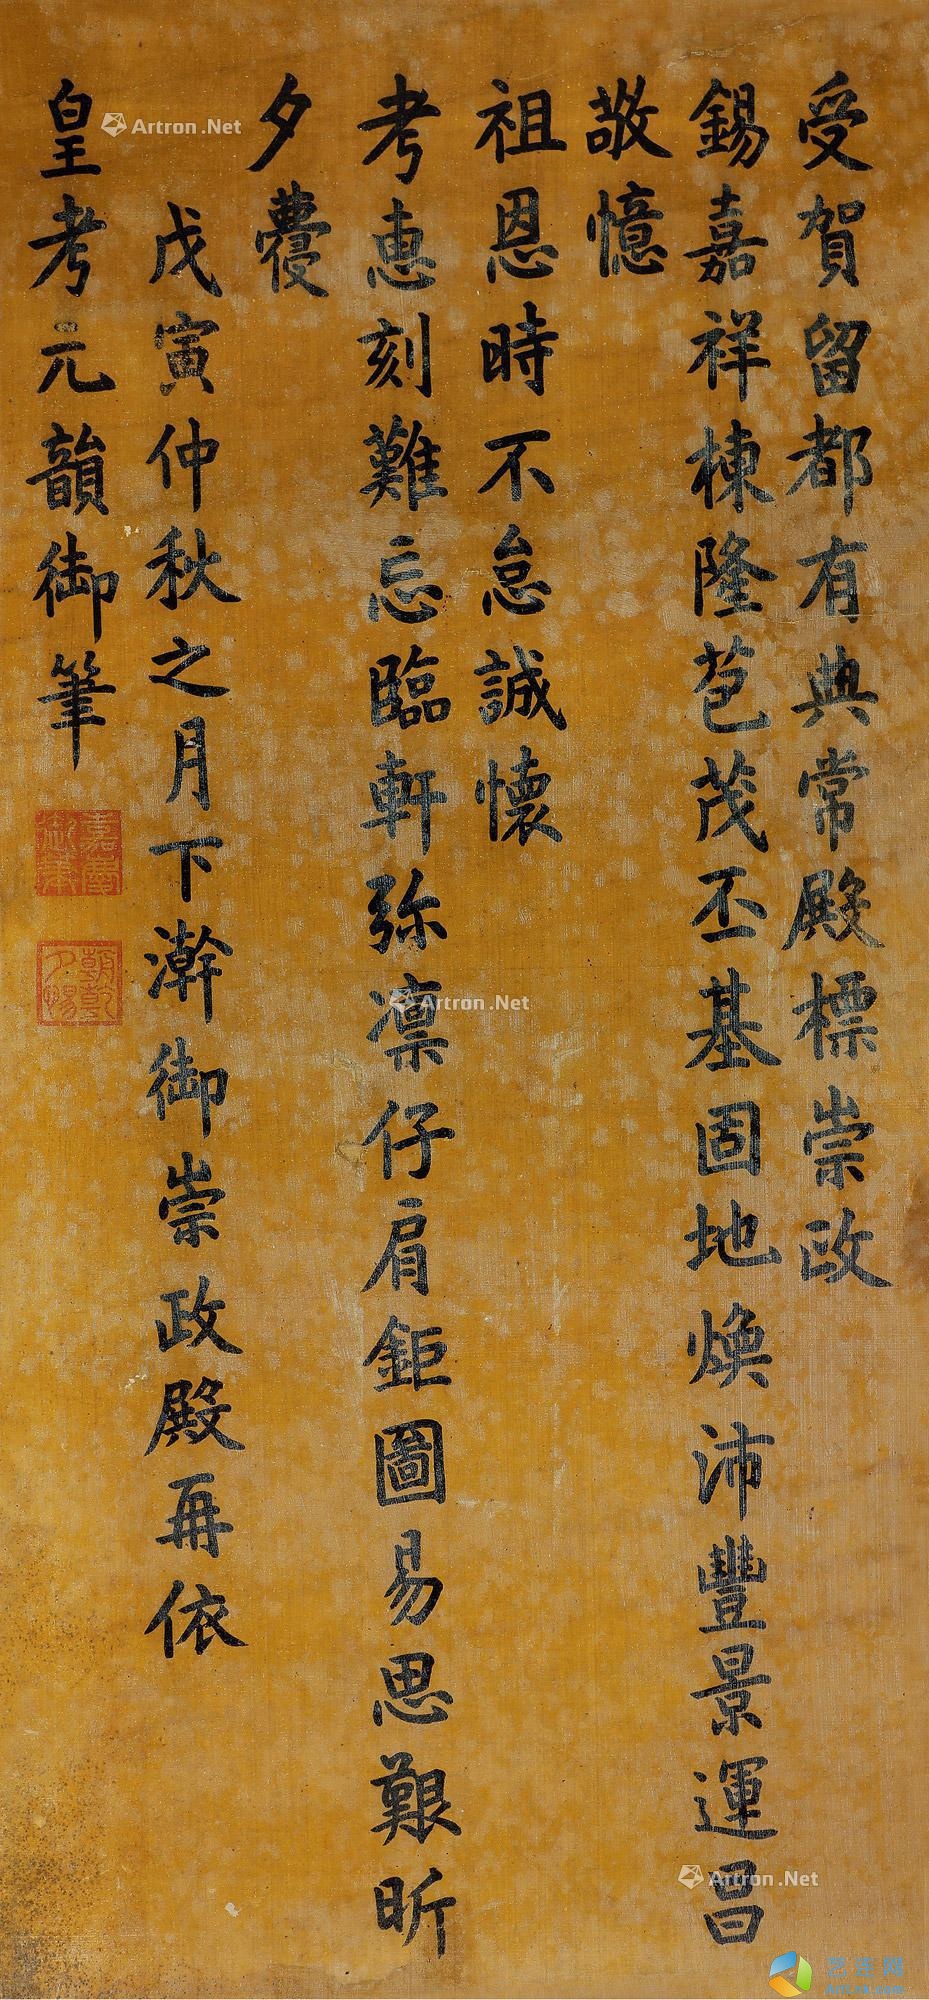 受賀留都有典常殿標崇政
錫嘉祥棟隆苞茂丕基固地煥沛豐景運昌
敬憶
祖恩時不怠誠懷
考恵刻難忘臨軒弥凛仔肩鉅圖易思艱昕
夕
戊寅仲秋之月下澣御崇政殿再依
皇考元韻御筆
嘉慶御筆
朝乾夕惕
Artron.Net
Artron.Net
Artron.Net